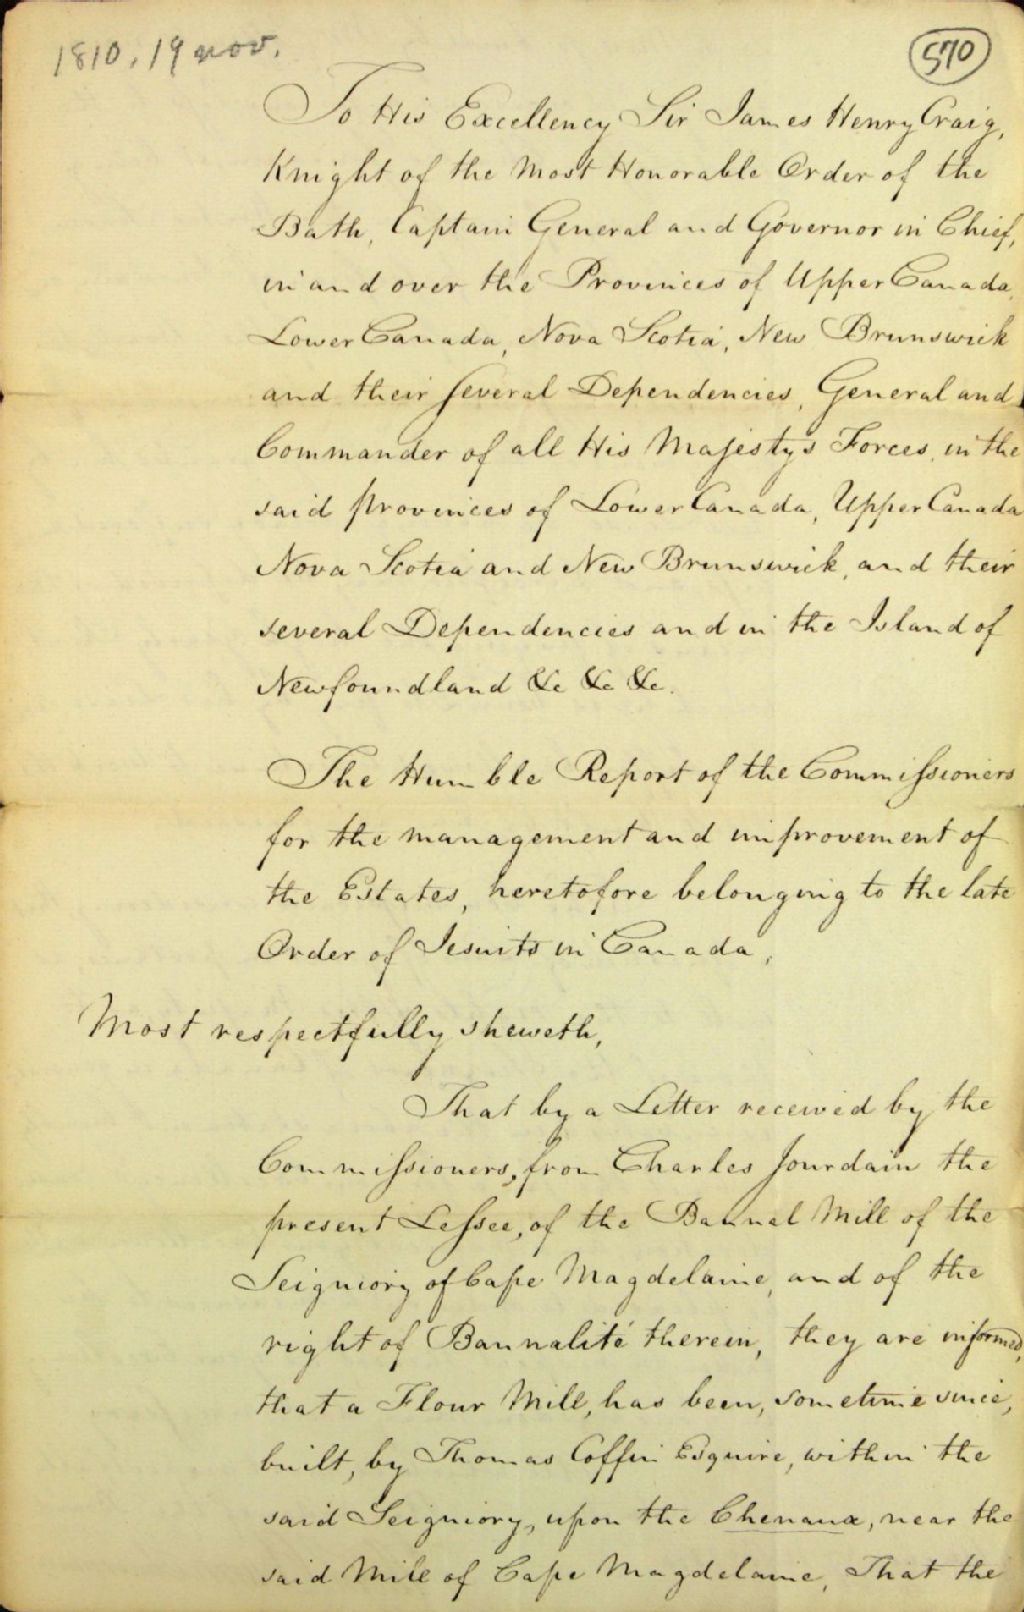 1810, 19 nov.
570
To His Excellency Sir James Henry Craig,
Knight of the Most Honorable Order of the
Bath, Captain General and Governor in Chief,
in and over the Provinces of Upper Canada,
Lower Canada, Nova Scotia, New Brunswick
and their several Dependencies, General and
Commander of all His Majestys Forces, in the
said provinces of Lower Canada, Upper Canada
Nova Scotia and New Brunswick, and their
several Dependencies and in the Island of
Newfoundland &c &c &c.
The Humble Report of the Commissioners
for the management and improvement of
the Estates, heretofore belonging to the late
Order of Jesuits in Canada,
Most respectfully sheweth,
That by a Letter received by the
Commissioners, from Charles Jourdain the
present Lessee, of the Bannal Mill of the
Seigniory of Cape Magdelaine, and of the
right of Bannalité therein, they are informed,
that a Flour Mill, has been, sometime since,
built, by Thomas Coffin Esquire, within the
said Seigniory, upon the Chenaux, near the
said Mill of Cape Magdelaine, That the